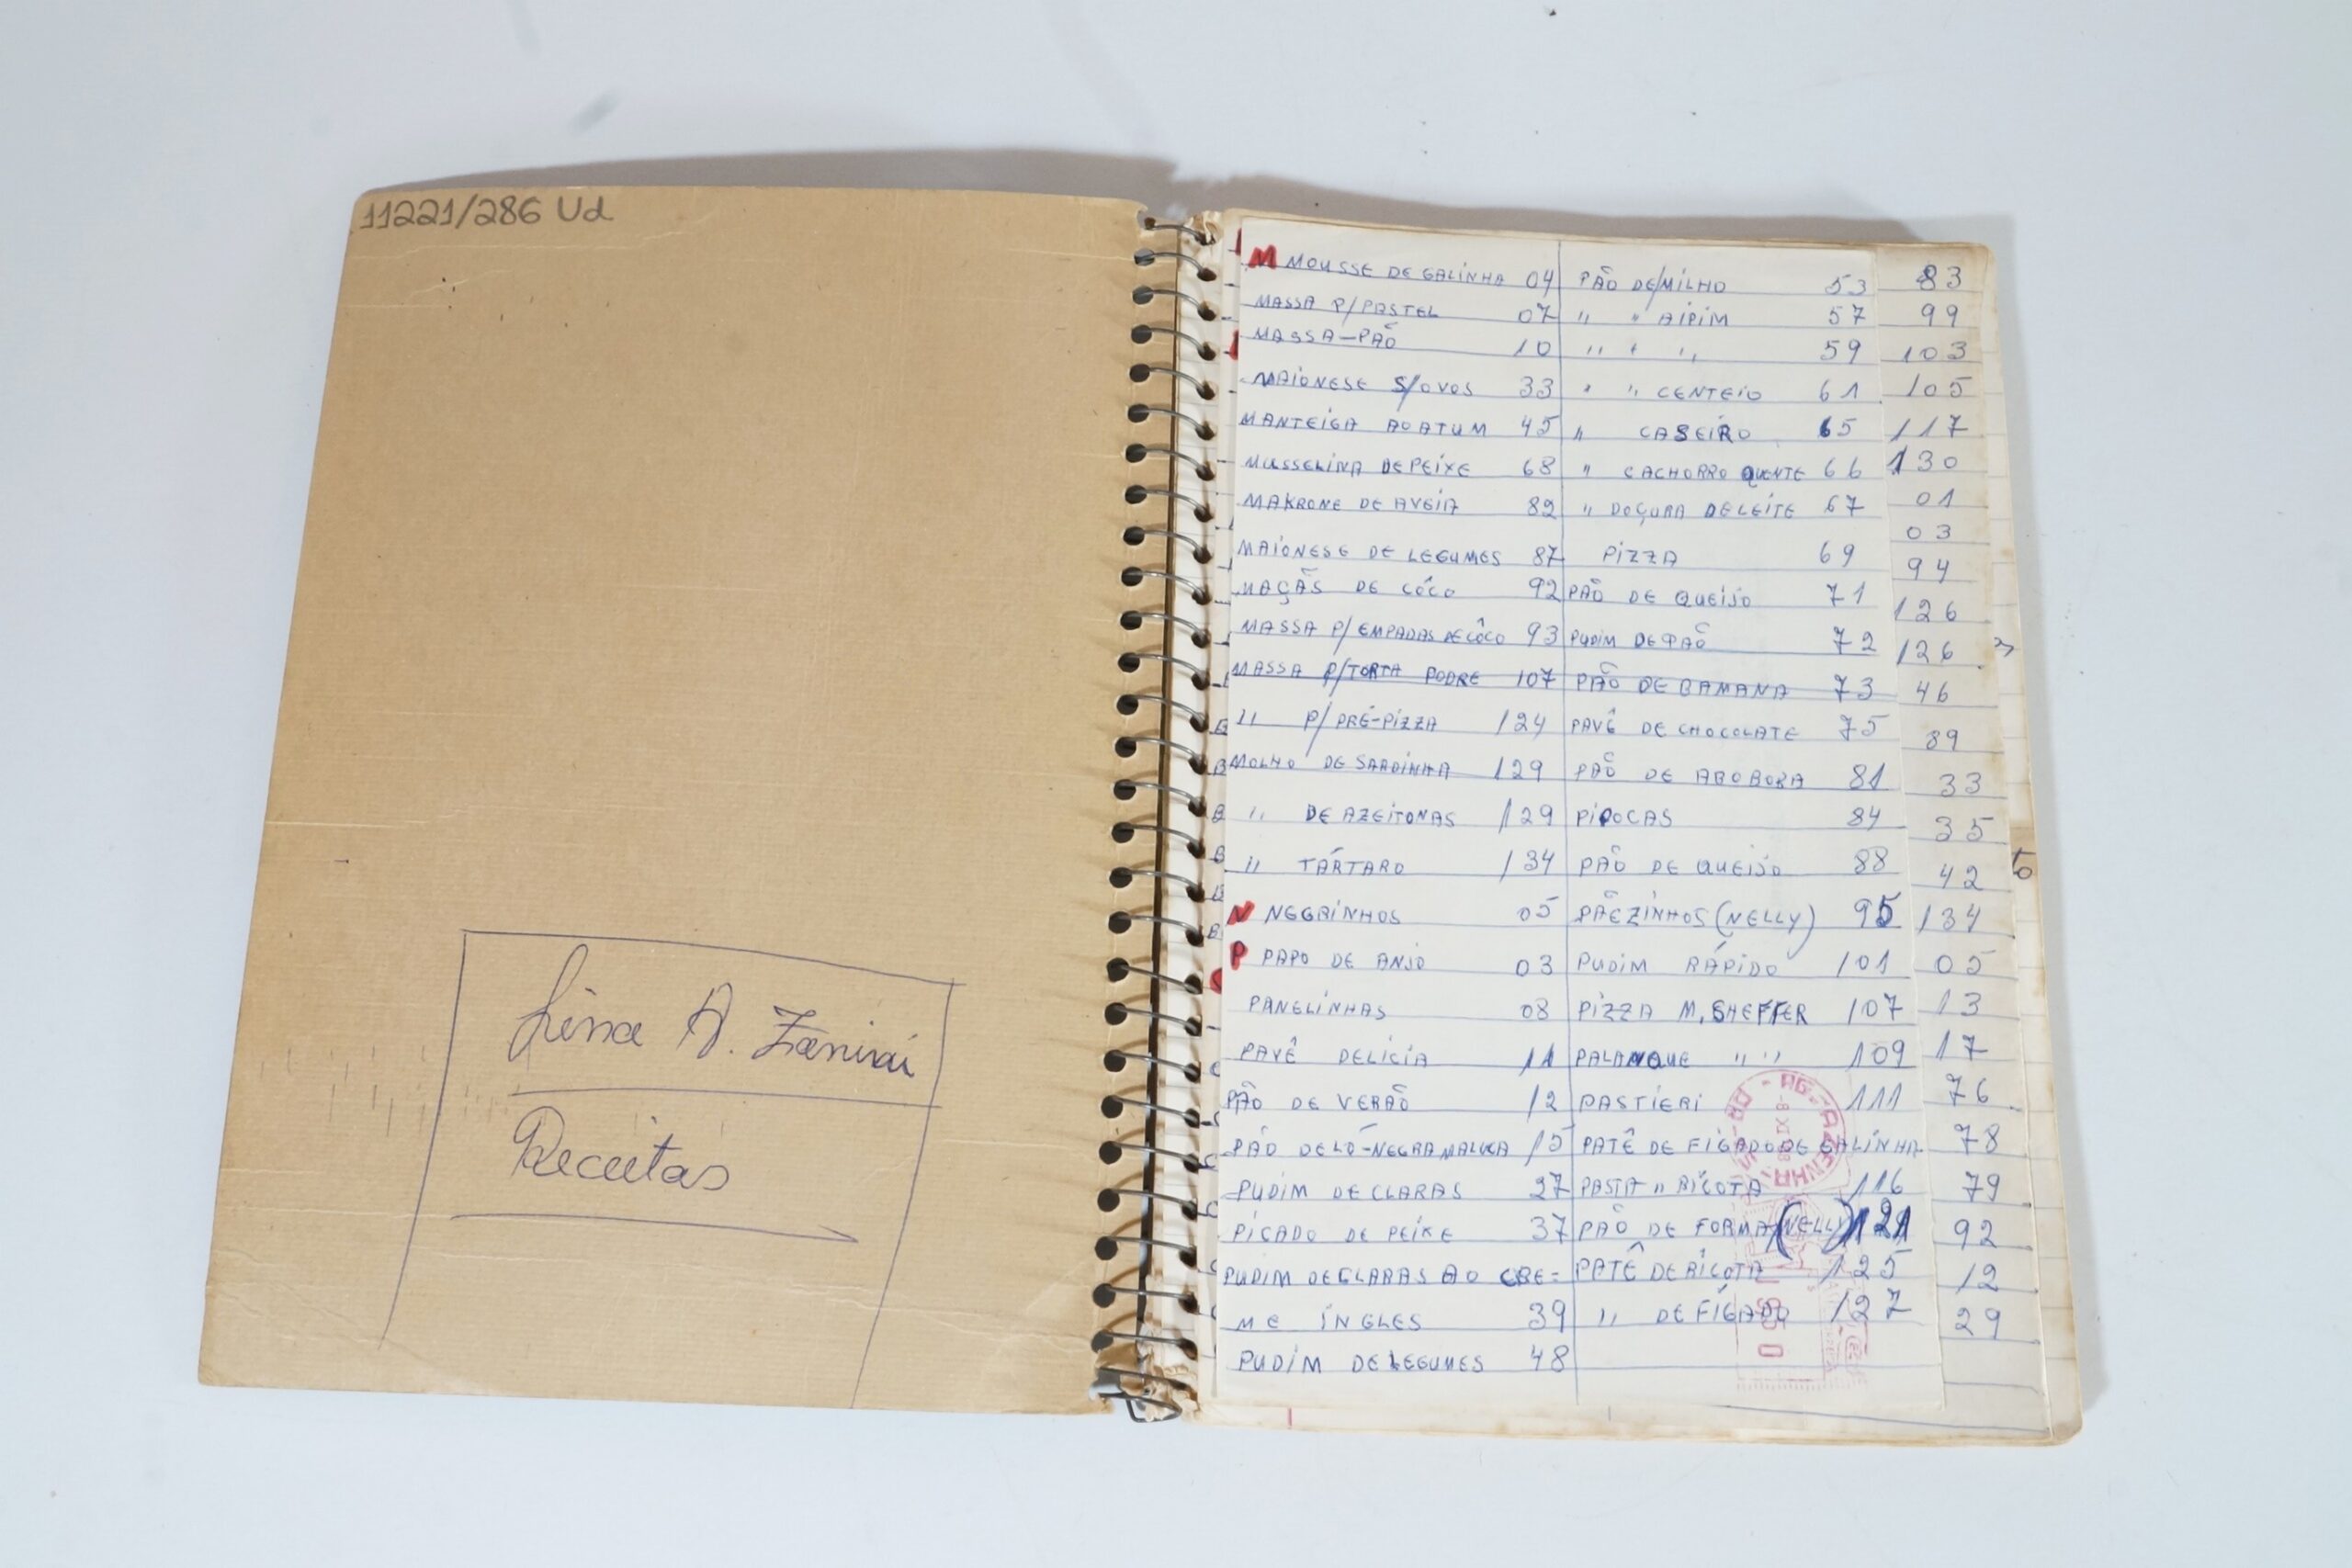 11221/286 Ud
Lina A. Zanirai
Receitas
M MOUSSE DE GALINHA 04
MASSA P/PASTEL 07
MASSA-PÃO 10
MAIONESE S/OVOS 33
MANTEIGA AO ATUM 45
MUSSELINA DE PEIXE 68
MAKRONE DE AVEIA 82
MAIONESE DE LEGUMES 87
MAÇÃS DE CÔCO 92
MASSA P/EMPADAS DE CÔCO 93
MASSA P/TORTA PODRE 107
" P/PRÉ-PIZZA 124
MOLHO DE SARDINHA 129
" DE AZEITONAS 129
" TÁRTARO 134
N NEGRINHOS 05
P PAPO DE ANJO 03
PANELINHAS 08
PAVÊ DELICIA 11
PÃO DE VERÃO 12
PÃO DE LÓ-NEGRA MALUCA 15
PUDIM DE CLARAS 27
PICADO DE PEIXE 37
PUDIM DE CLARAS AO CRE=
ME INGLES 39
PUDIM DE LEGUMES 48
PÃO DE MILHO 53
" " AIPIM 57
" " " 59
" " CENTEIO 61
" CASEIRO 65
" CACHORRO QUENTE 66
" DOÇURA DE LEITE 67
PIZZA 69
PÃO DE QUEIJO 71
PUDIM DE PÃO 72
PÃO DE BANANA 73
PAVÊ DE CHOCOLATE 75
PÃO DE ABOBORA 81
PIPOCAS 84
PÃO DE QUEIJO 88
PÃEZINHOS (NELLY) 95
PUDIM RÁPIDO 101
PIZZA M. SHEFFER 107
PALANQUE " " 109
PASTIERI 111
PATÊ DE FÍGADO DE GALINHA
PASTA " RICOTA 116
PÃO DE FORMA (NELLY) 121
PATÊ DE RICOTA 125
" DE FÍGADO 127
83
99
103
105
117
130
01
03
94
126
126
46
89
33
35
42
134
05
13
17
76
78
79
92
12
29